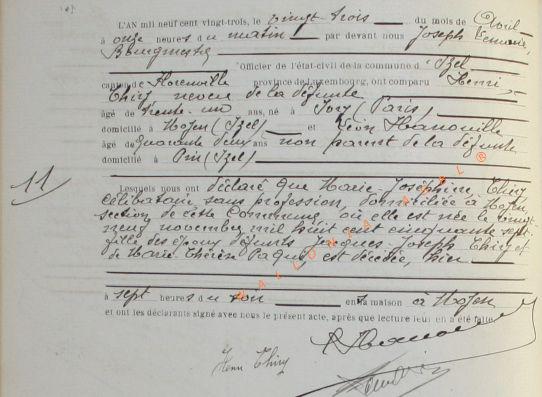 L'AN mil neuf cent vingt-trois, le vingt-trois du mois de Avril
à onze heures du matin par devant nous Joseph
Bourgmestre
Officier de l'état-civil de la commune d'Izel
canton de Florenville province de Luxembourg, ont comparu Henri,
Thiry neveu de la défunte
âgé de trente-un ans, né à Ivry (Paris)
domicilié à Moyen (Izel) et Léon Hanouille
âgé de quarante deux ans non parent de la défunte
domicilié à Pin (Izel)
11
Lesquels nous ont déclaré que Marie-Joséphine, Thiry
célibataire, sans profession, domiciliée à Moyen
section de cette Commune, où elle est née le vingt
neuf novembre mil huit cent cinquante sept
fille des époux défunts Jacques-Joseph Thiry et
de Marie-Thérèse Paquis, est décédée, hier
à sept heures du soir en la maison à Moyen
et ont les déclarants signé avec nous le présent acte, après que lecture leur en a été faite
Henri Thiry